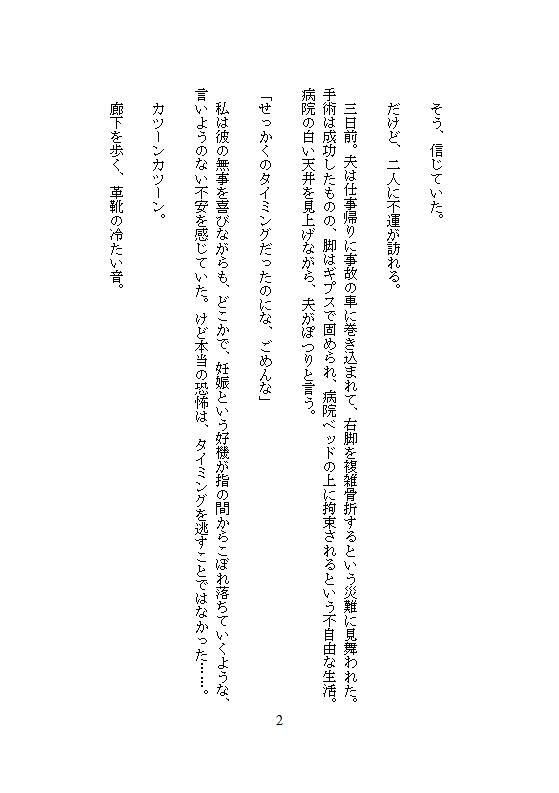 そう、信じていた。
だけど、二人に不運が訪れる。
三日前。夫は仕事帰りに事故の車に巻き込まれて、右脚を複雑骨折するという災難に見舞われた。
手術は成功したものの、脚はギプスで固められ、病院ベッドの上に拘束されるという不自由な生活。
病院の白い天井を見上げながら、夫がぽつりと言う。
「せっかくのタイミングだったのにな、ごめんな」
私は彼の無事を喜びながらも、どこかで、妊娠という好機が指の間からこぼれ落ちていくような、
言いようのない不安を感じていた。けど本当の恐怖は、タイミングを逃すことではなかった……。
カツーンカツーン。
廊下を歩く、革靴の冷たい音。
2